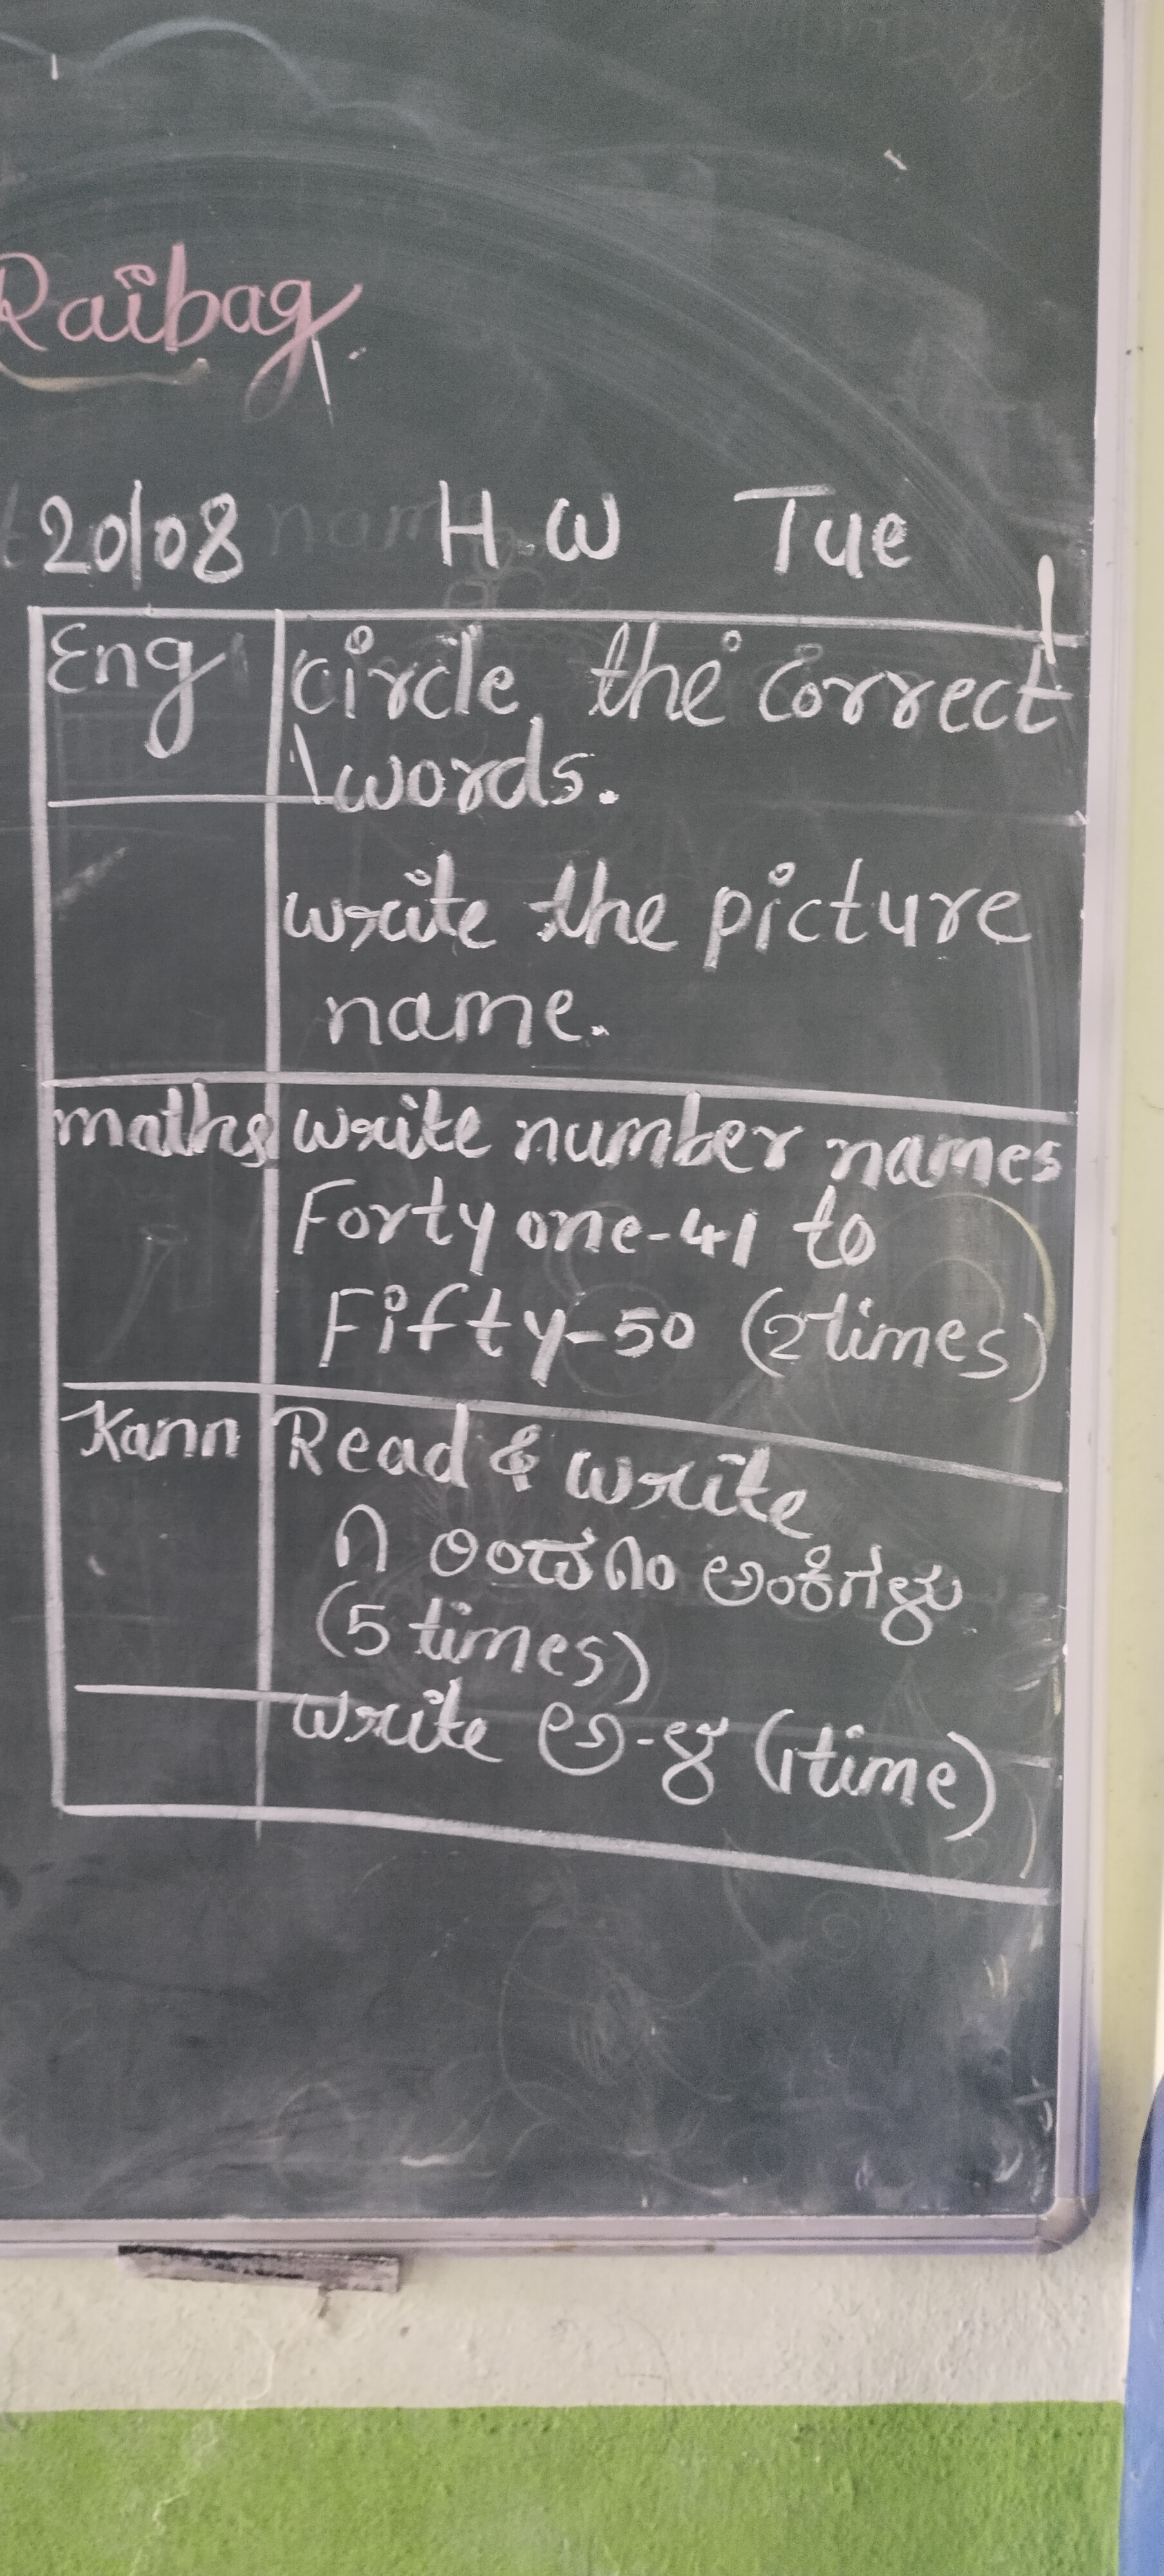 Raibag
20/08 H.W Tue
Eng circle the correct
words.
write the picture
name.
maths write number names
Forty one-41 to
Fifty-50 (2 times)
Kann Read & write
೧ ರಿಂದ ೧೦ ಅಂಕಿಗಳು
(5 times)
write ಅ-ಳ (1 time)